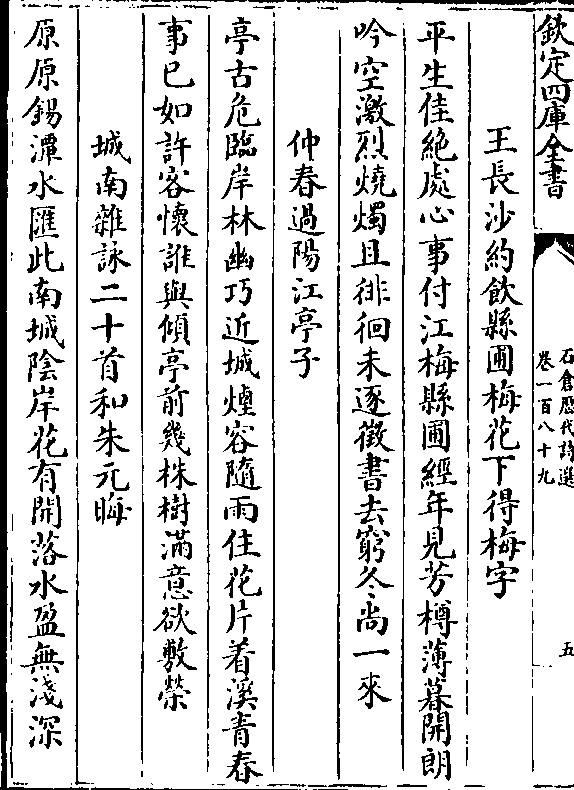 欽定四庫全書
石倉歷代詩選
卷一百八十九
五
王長沙約飲縣圃梅花下得梅字
平生佳絶處心事付江梅縣圃經年見芳樽薄暮開朗
吟空激烈燒燭且徘徊未逐徵書去窮冬尚一來
仲春過陽江亭子
亭古危臨岸林幽巧近城煙容隨雨住花片着溪青春
事已如許客懷誰與傾亭前幾株樹滿意欲敷榮
城南雜詠二十首和朱元晦
原原錫潭水匯此南城陰岸花有開落水盈無淺深